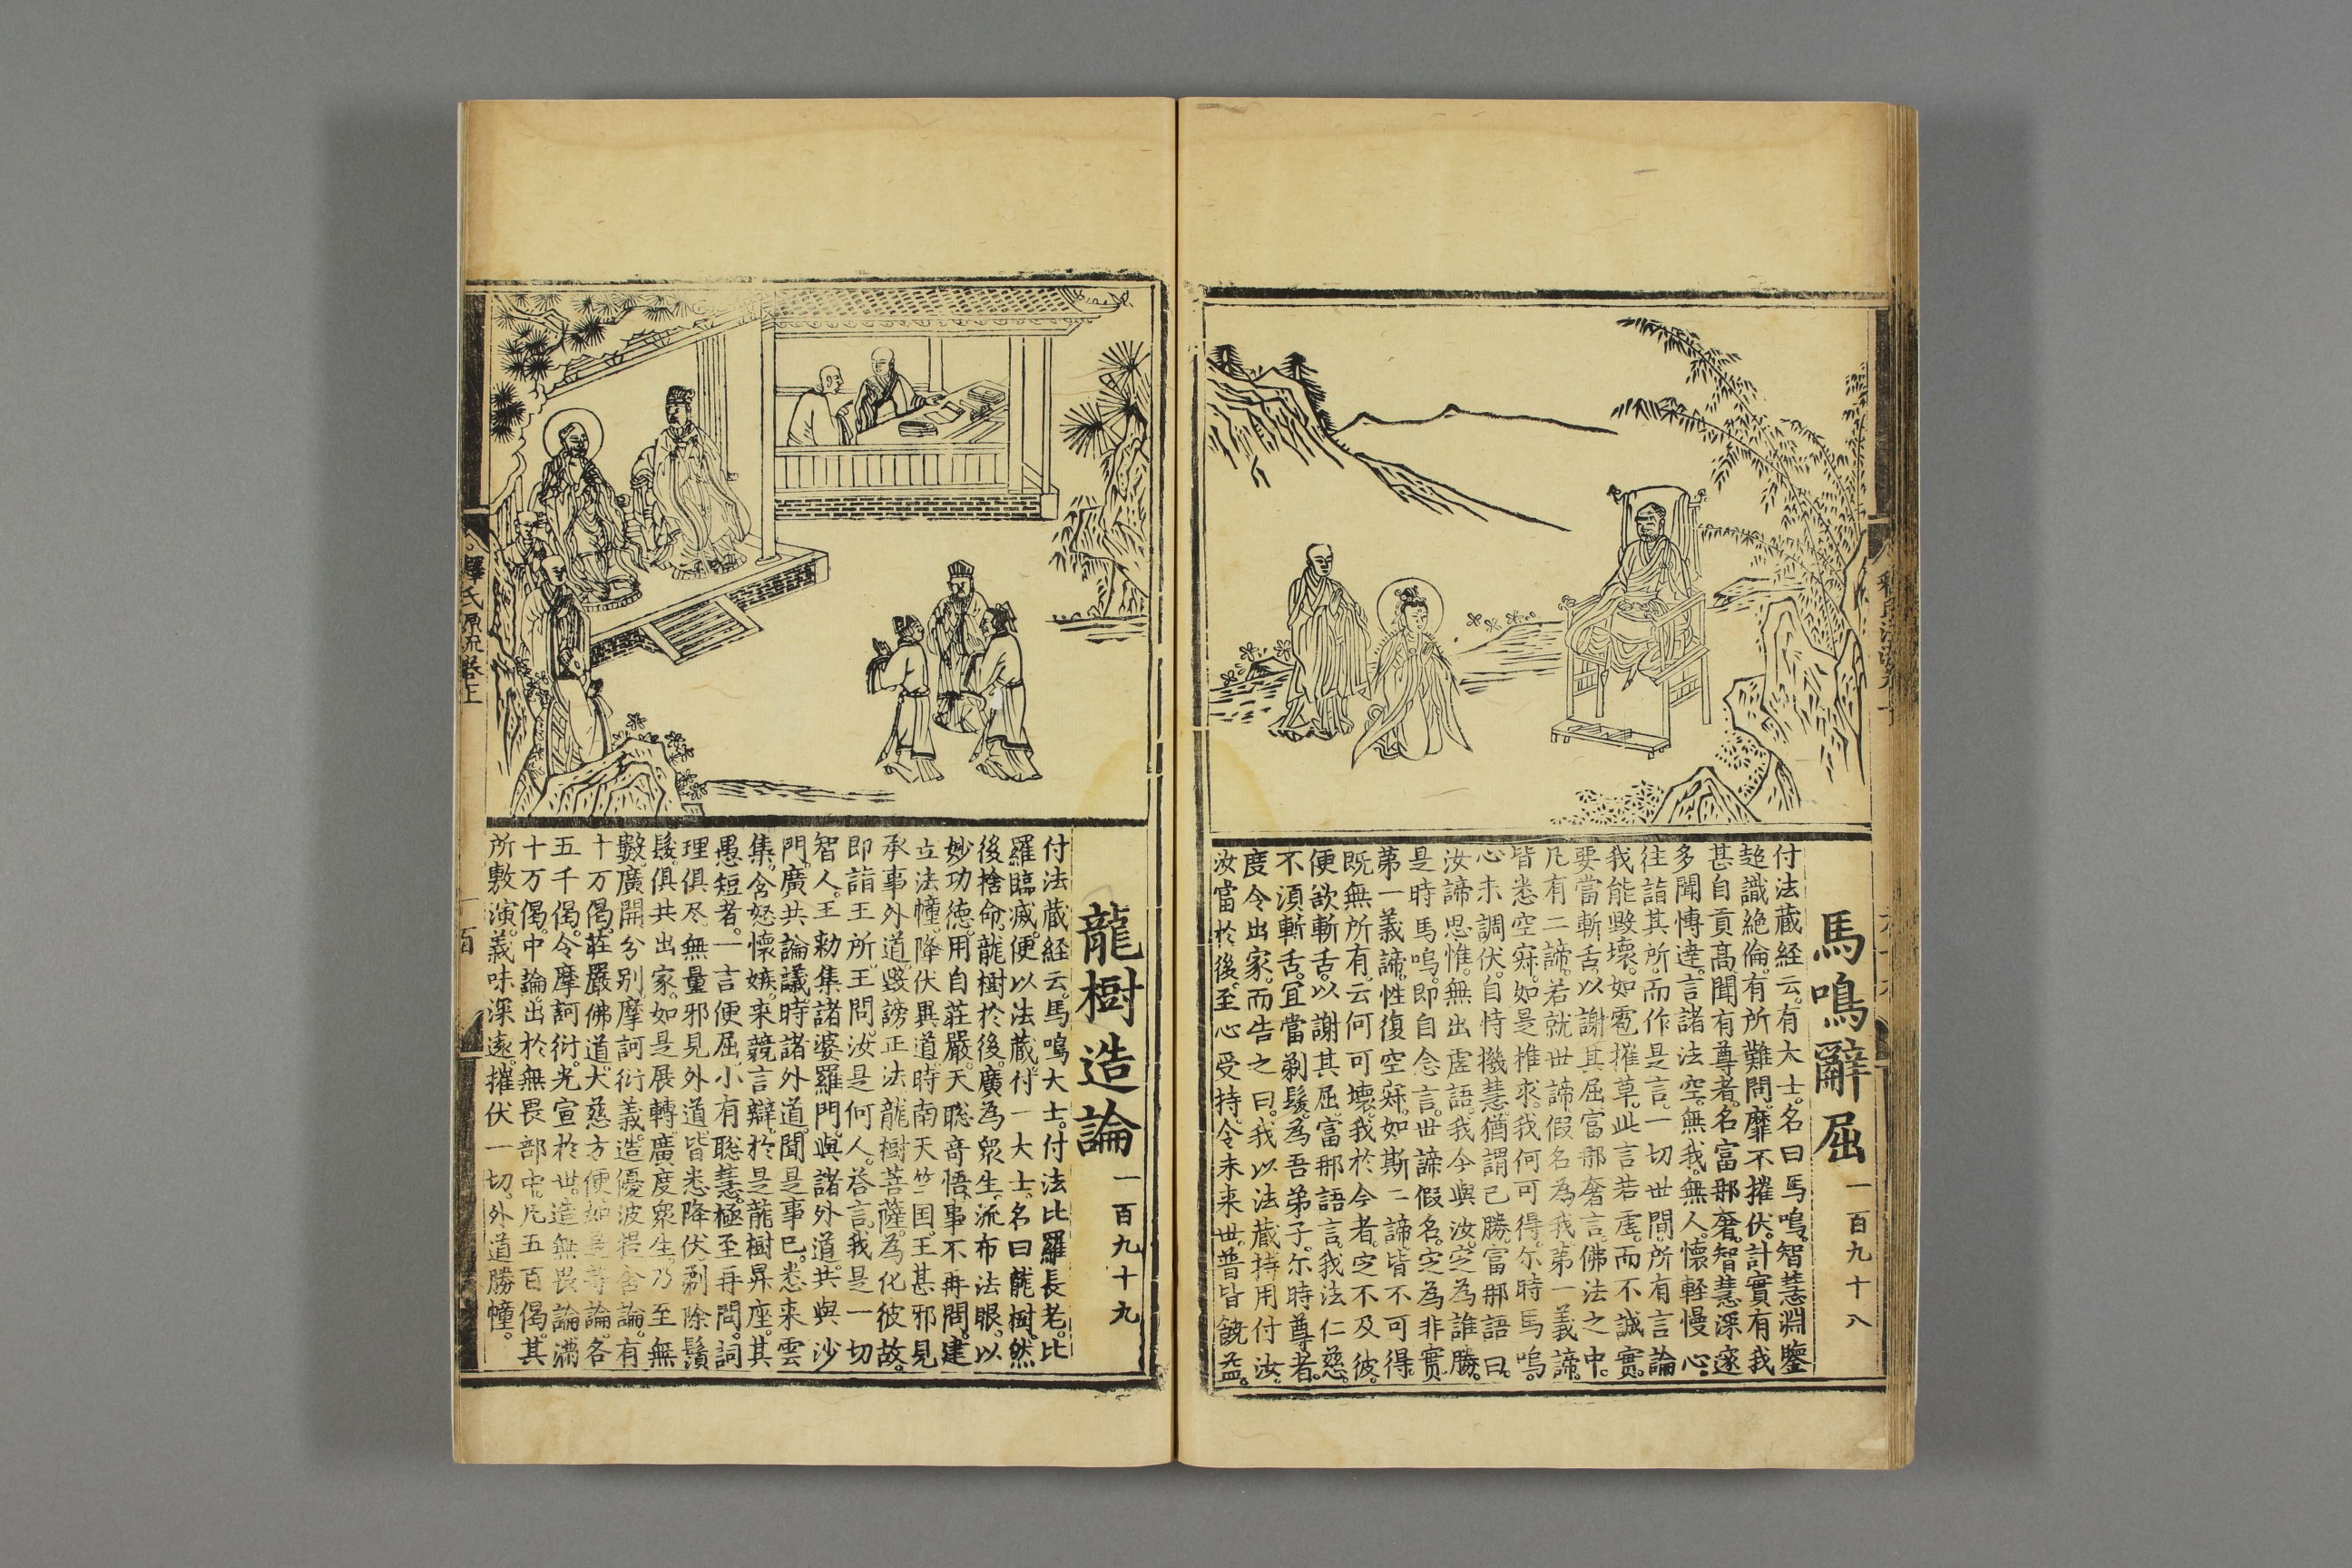 馬鳴辭屈 一百九十八
付法蔵経云。有大士。名曰馬鳴。智慧淵鑒
超識絶倫。有所難問。靡不摧伏。計實有我
甚自貢高。聞有尊者。名富那奢。智慧深邃
多聞愽達。言諸法空。無我。無人。懐軽慢心。
往詣其所。而作是言。一切世間。所有言論
我能毀壞。如雹摧草。此言若虚。而不誠實。
要當斬舌。以謝其屈。富那奢言。佛法之中。
凡有二諦。若就世諦。假名為我。第一義諦。
皆悉空寂。如是推求。我何可得。尔時馬鳴。
心未調伏。自恃機慧。猶謂己勝。富那語曰。
汝諦思惟。無出虚語。我今與汝。定為誰勝。
是時馬鳴。即自念言。世諦假名。定為非實
第一義諦。性復空寂。如斯二諦。皆不可得。
既無所有。云何可壊。我於今者。定不及彼。
便欲斬舌。以謝其屈。富那語言。我法仁慈。
不湏斬舌。宜當剃髮。為吾弟子。尓時尊者。
度令出家。而告之曰。我以法蔵。持用付汝。
汝當於後。至心受持。令未来世。普皆饒益。
龍樹造論 一百九十九
付法蔵経云。馬鳴大士。付法比羅長老。比
羅臨滅。便以法蔵。付一大士。名曰龍樹。然
後捨命。龍樹於後。廣為衆生。流布法眼。以
妙功徳。用自荘嚴。天聡竒悟。事不再問。建
立法幢。降伏異道。時南天竺国王。甚邪見
承事外道。毀謗正法。龍樹菩薩。為化彼故。
即詣王所。王問。汝是何人。荅言。我是一切
智人。王勑集諸婆羅門。與諸外道。共與沙
門。廣共論議。時諸外道。聞是事已。悉来雲
集。含怒懐嫉。来競言辯。於是龍樹昇座。其
愚短者。一言便屈。小有聡慧。極至再問。詞
理俱尽。無量邪見外道。皆悉降伏。剃除鬚
髮。俱共出家。如是展轉。廣度衆生。乃至無
數。廣開分别摩訶衍義。造優波提舎論。有
十万偈。荘嚴佛道。大慈方便。如是等論。各
五千偈。令摩訶衍。光宣於世。造無畏論。滿
十万偈。中論出於無畏部中。凡五百偈。其
所敷演。義味深遠。摧伏一切。外道勝幢。
釋氏源流卷上
一百